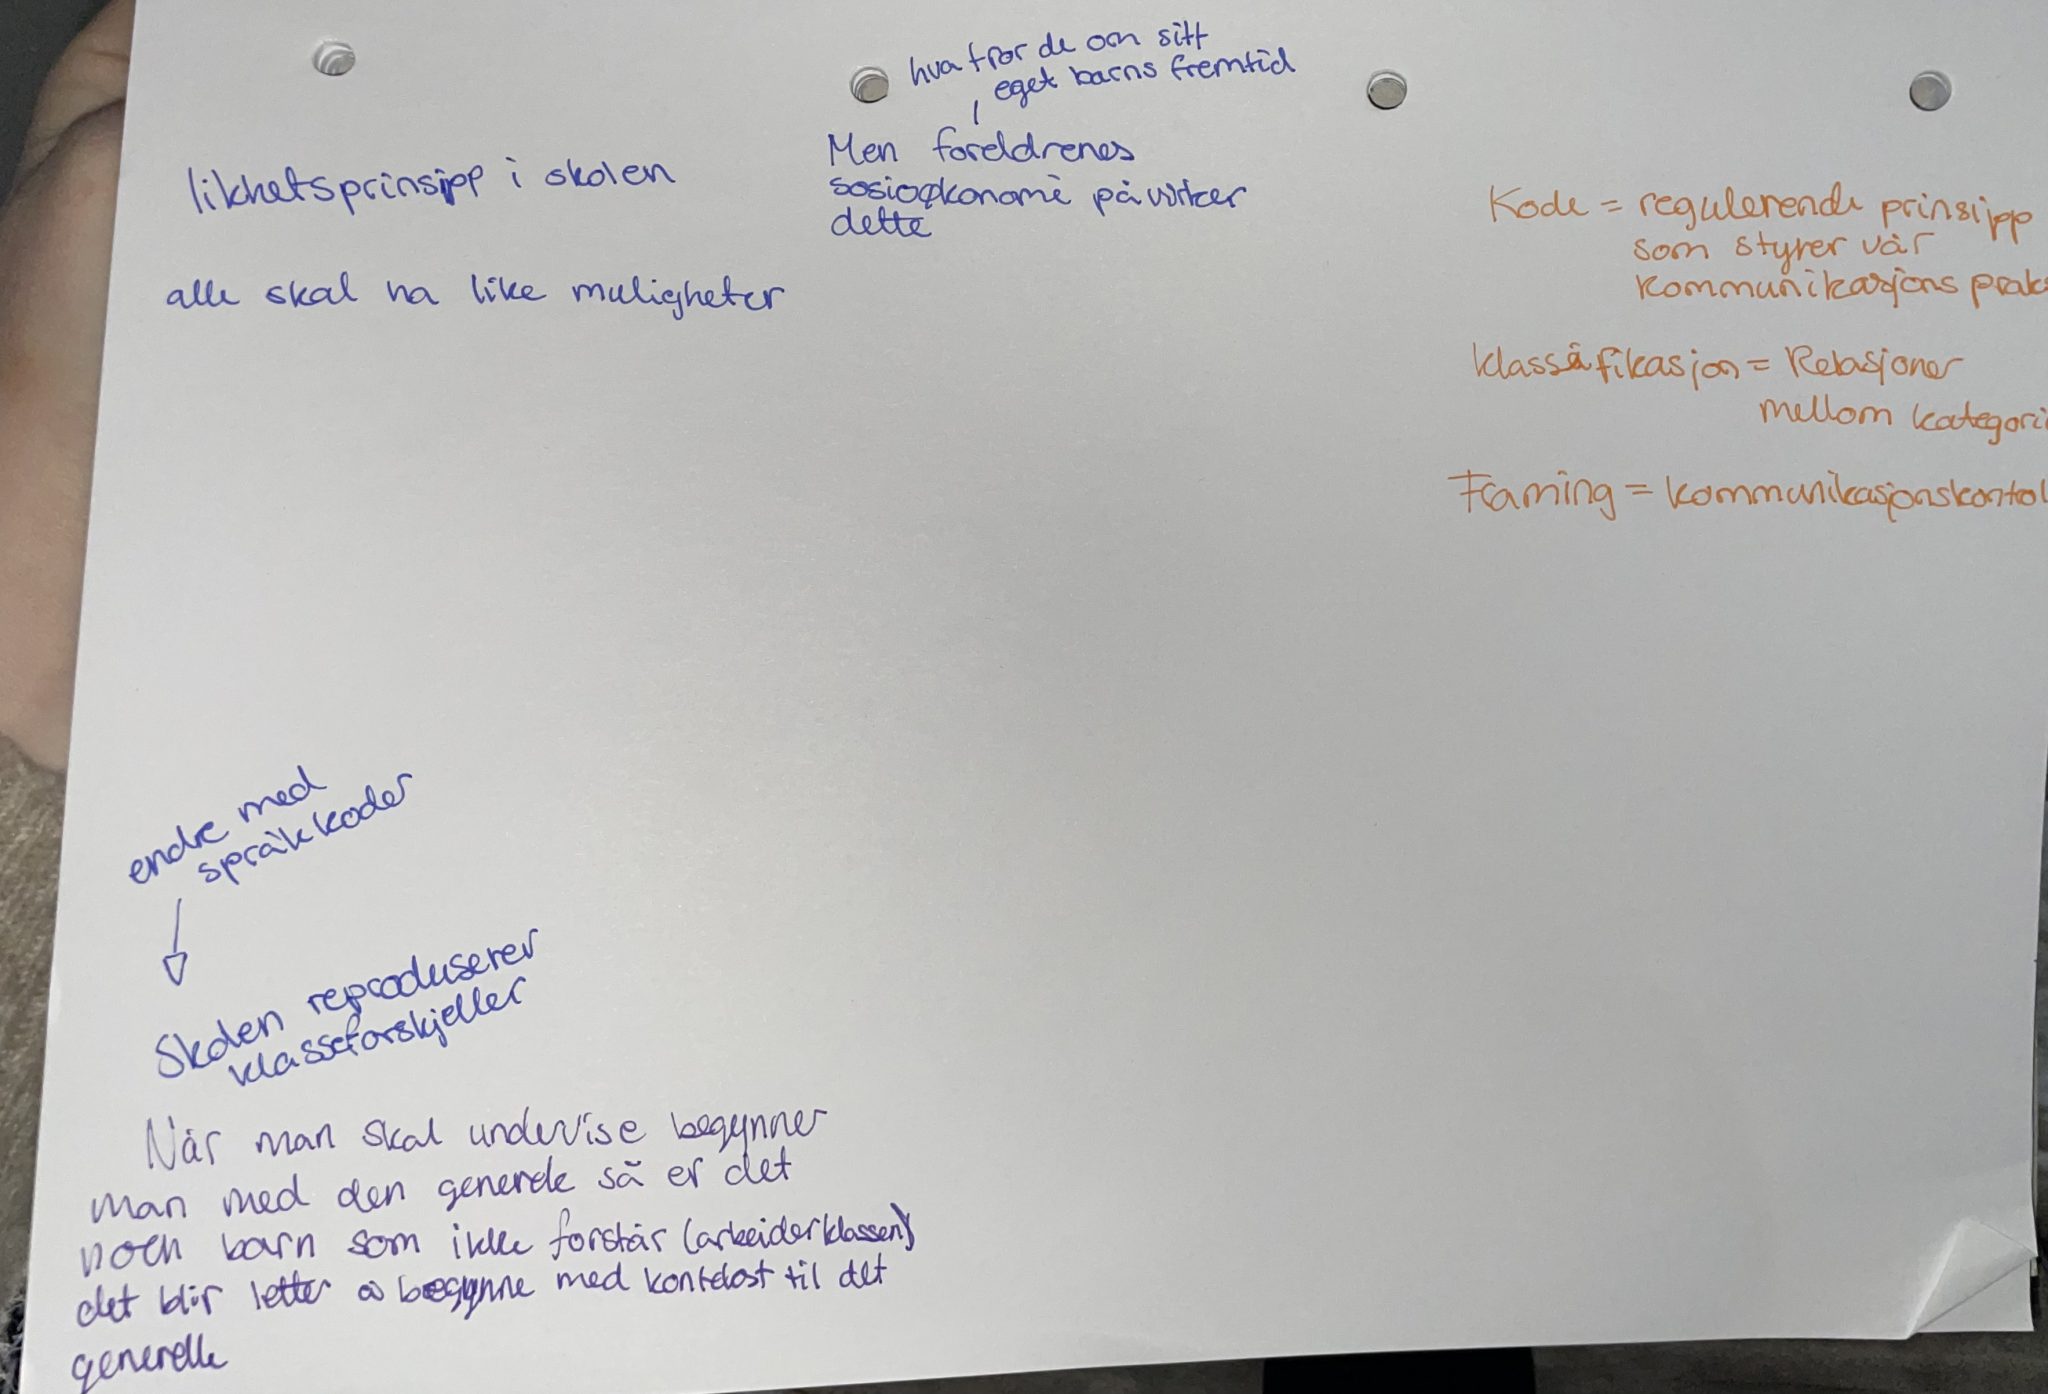 likhetsprinsipp i skolen
alle skal ha like muligheter
hva tror de om sitt
eget barns fremtid
Men foreldrenes
sosioøkonomi påvirker
dette
Kode = regulerende prinsipp
som styrer vår
kommunikasjons praks
Klassifikasjon = Relasjoner
mellom kategori
Framing = kommunikasjonskontol
endre med
språkkoder
Skolen reproduserer
klasseforskjeller
Når man skal undervise begynner
man med den generele så er det
noen barn som ikke forstår (arbeiderklassen)
det blir letter å begynne med kontekst til det
generelle